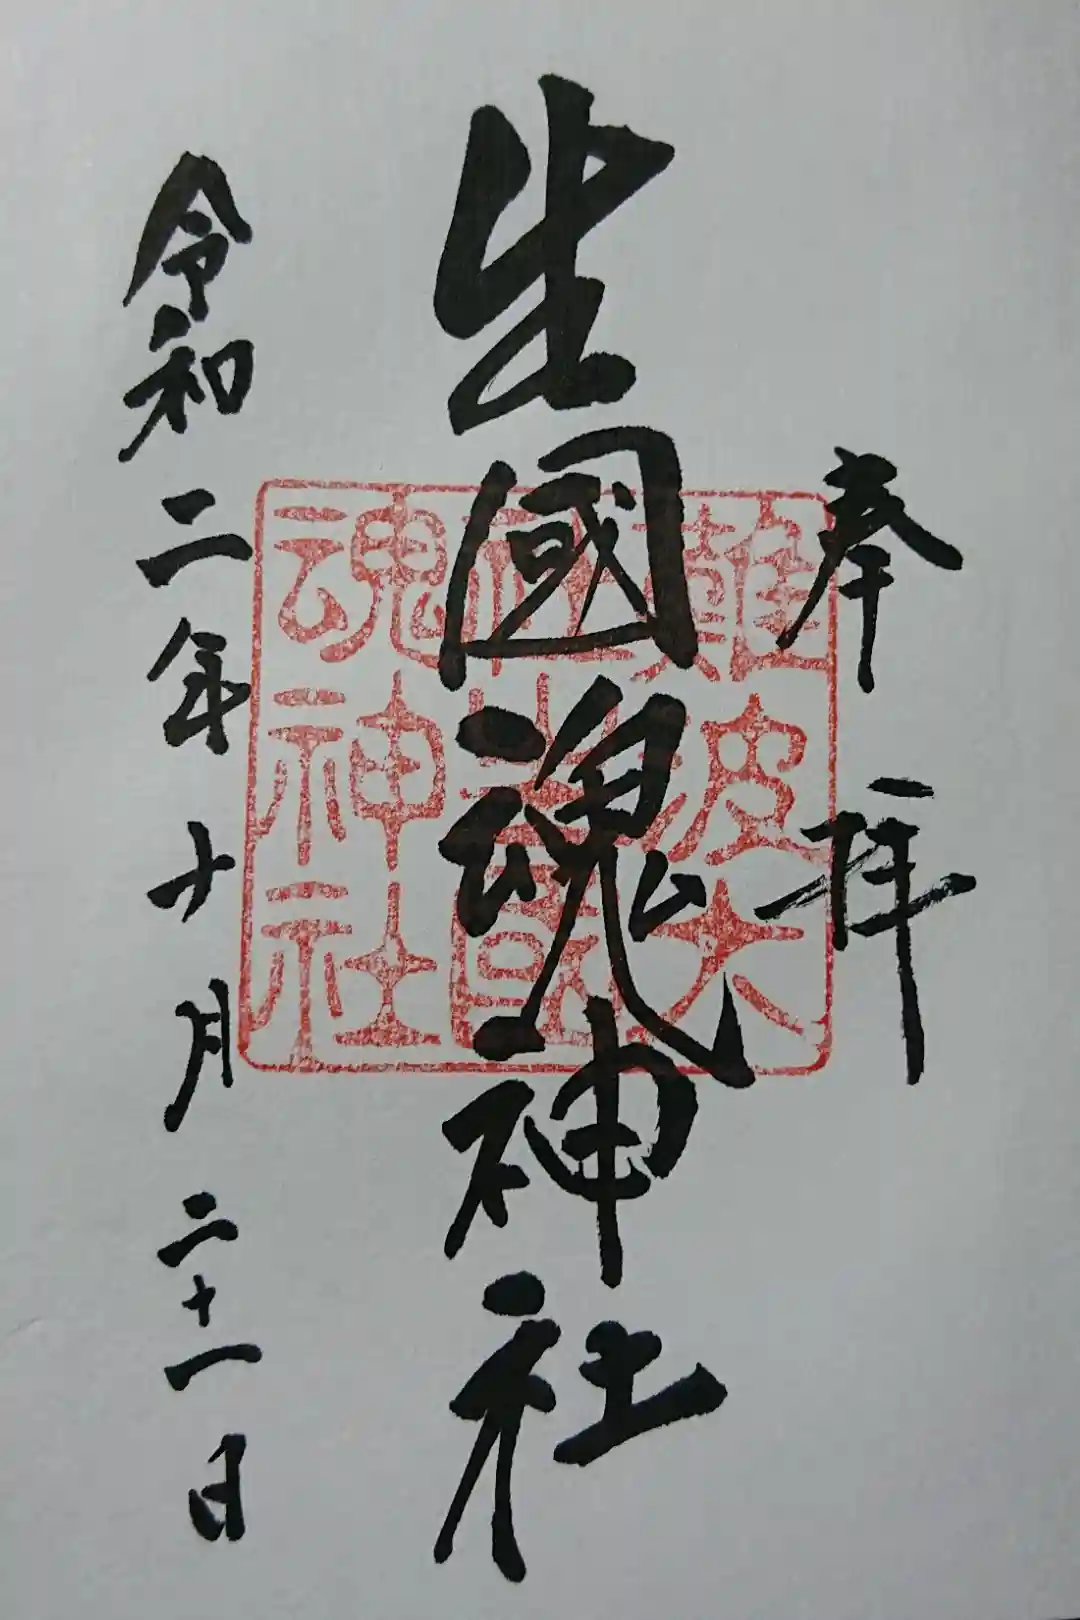 奉拝
生國魂神社
難波大
社生國
魂神社
令和二年十月二十一日